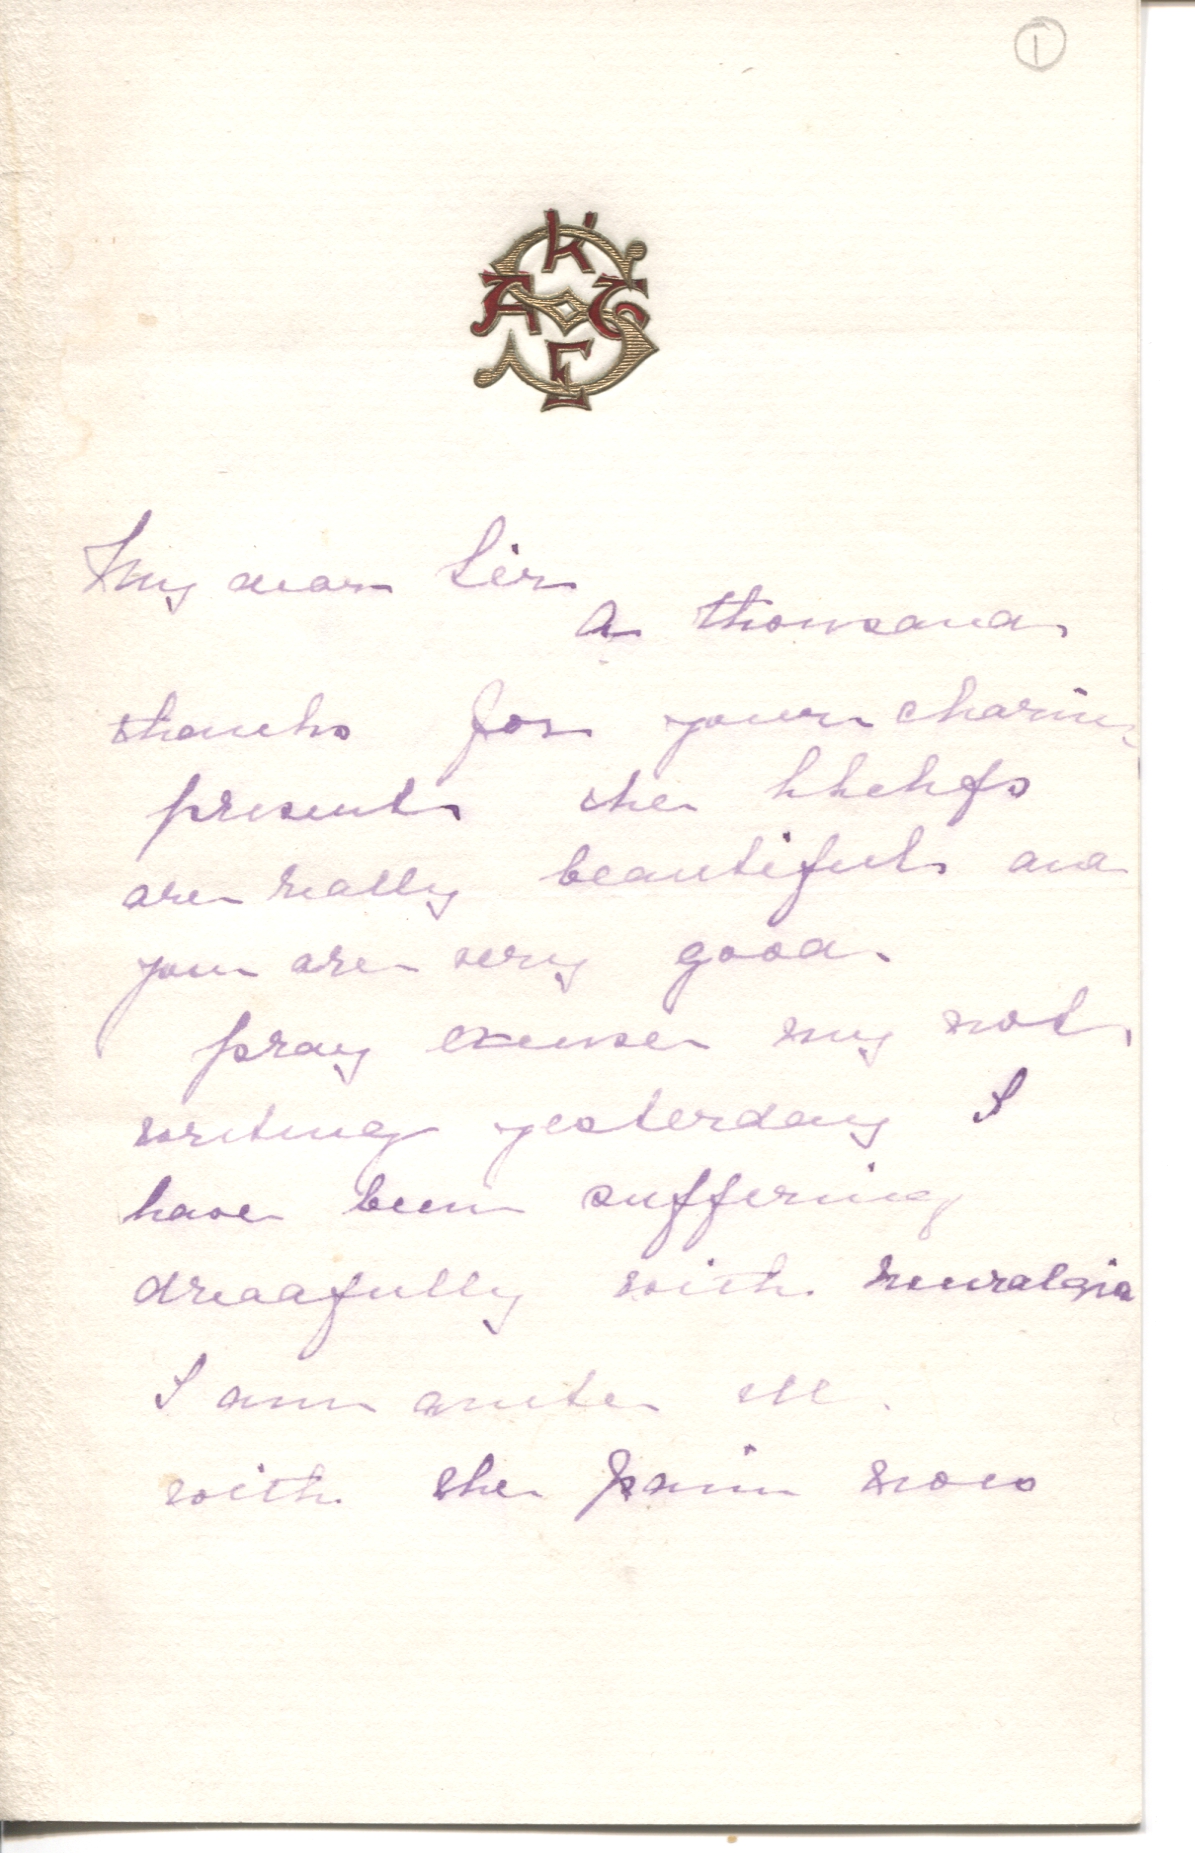 1
K
A G
E
My dear Sir
A thousand
thanks for your charming
present the hkchfs
are really beautiful and
you are very good.
pray excuse my not
writing yesterday I
have been suffering
dreadfully with neuralgia
I am quite ill.
with the pain now